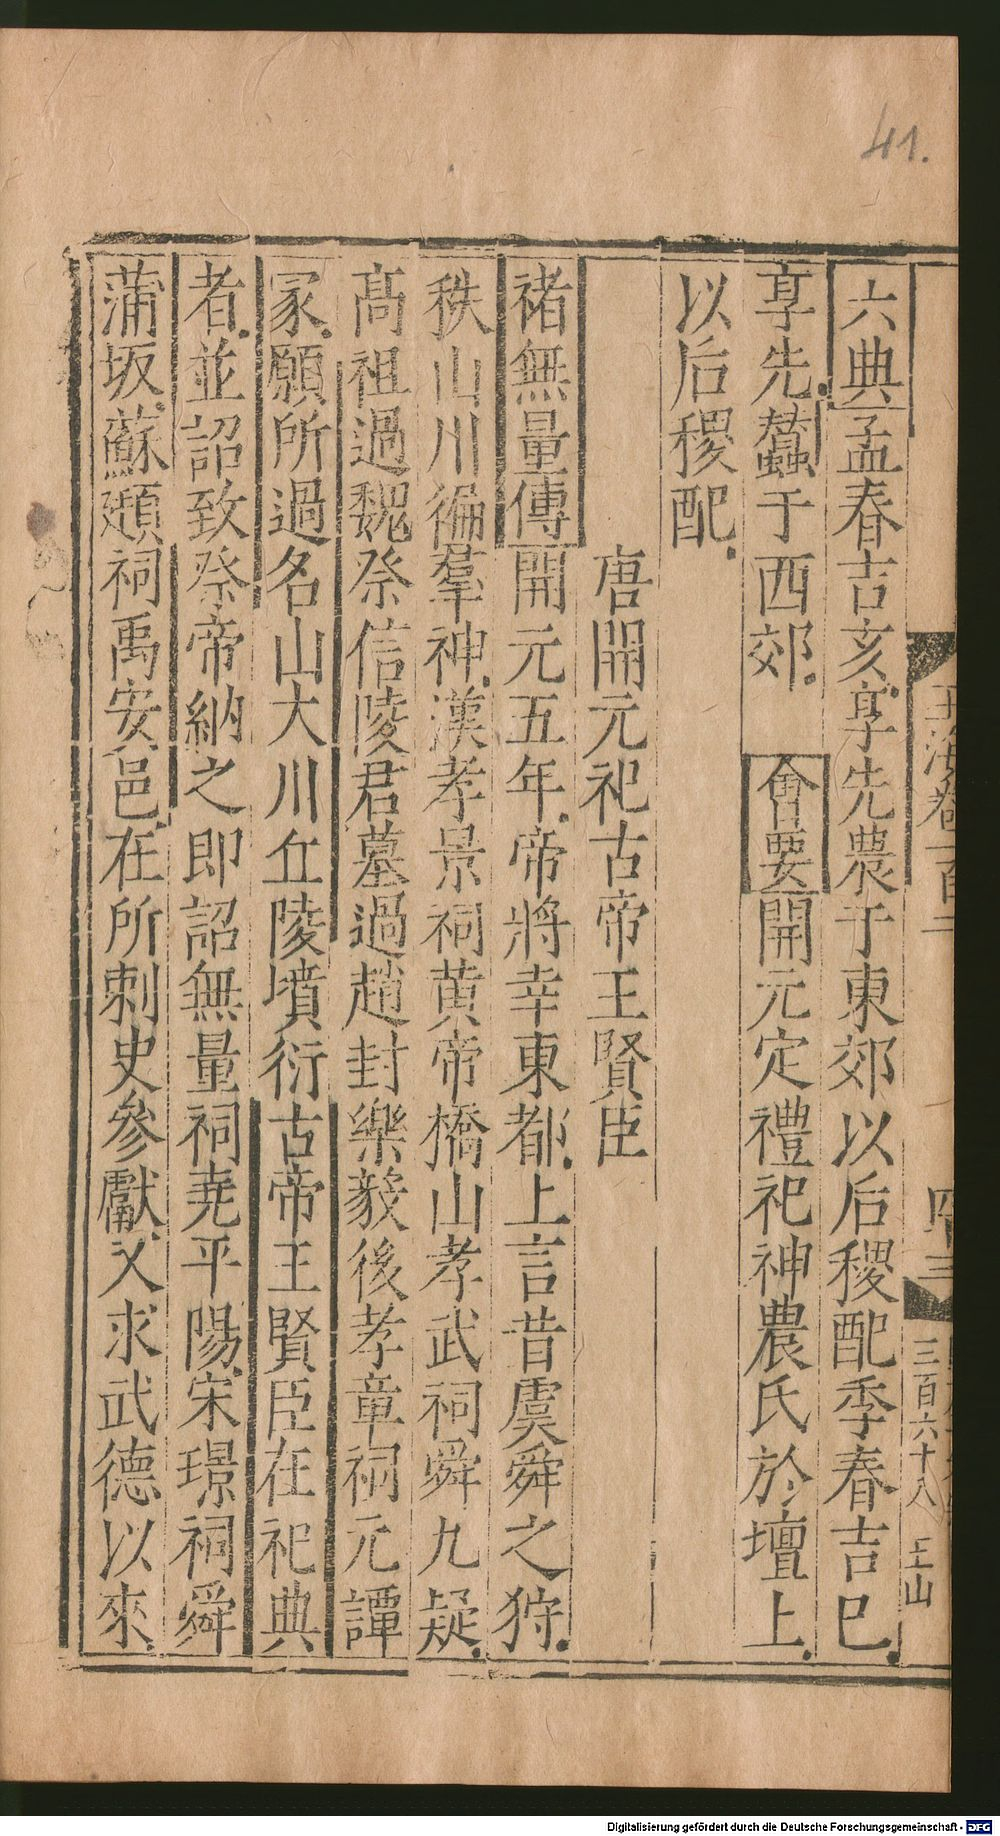 41.
玉海卷一百二
四三
三百六十八
王山
六典孟春吉亥享先農于東郊以后稷配季春吉巳
享先蠶于西郊 會要開元定禮祀神農氏於壇上
以后稷配
唐開元祀古帝王賢臣
褚無量傳開元五年帝將幸東都上言昔虞舜之狩
秩山川徧羣神漢孝景祠黄帝橋山孝武祠舜九疑
高祖過魏祭信陵君墓過趙封樂毅後孝章祠元譚
冢願所過名山大川丘陵墳衍古帝王賢臣在祀典
者並詔致祭帝納之即詔無量祠堯平陽宋璟祠舜
蒲坂蘇頲祠禹安邑在所刺史參獻又求武德以來
Digitalisierung gefördert durch die Deutsche Forschungsgemeinschaft - DFG